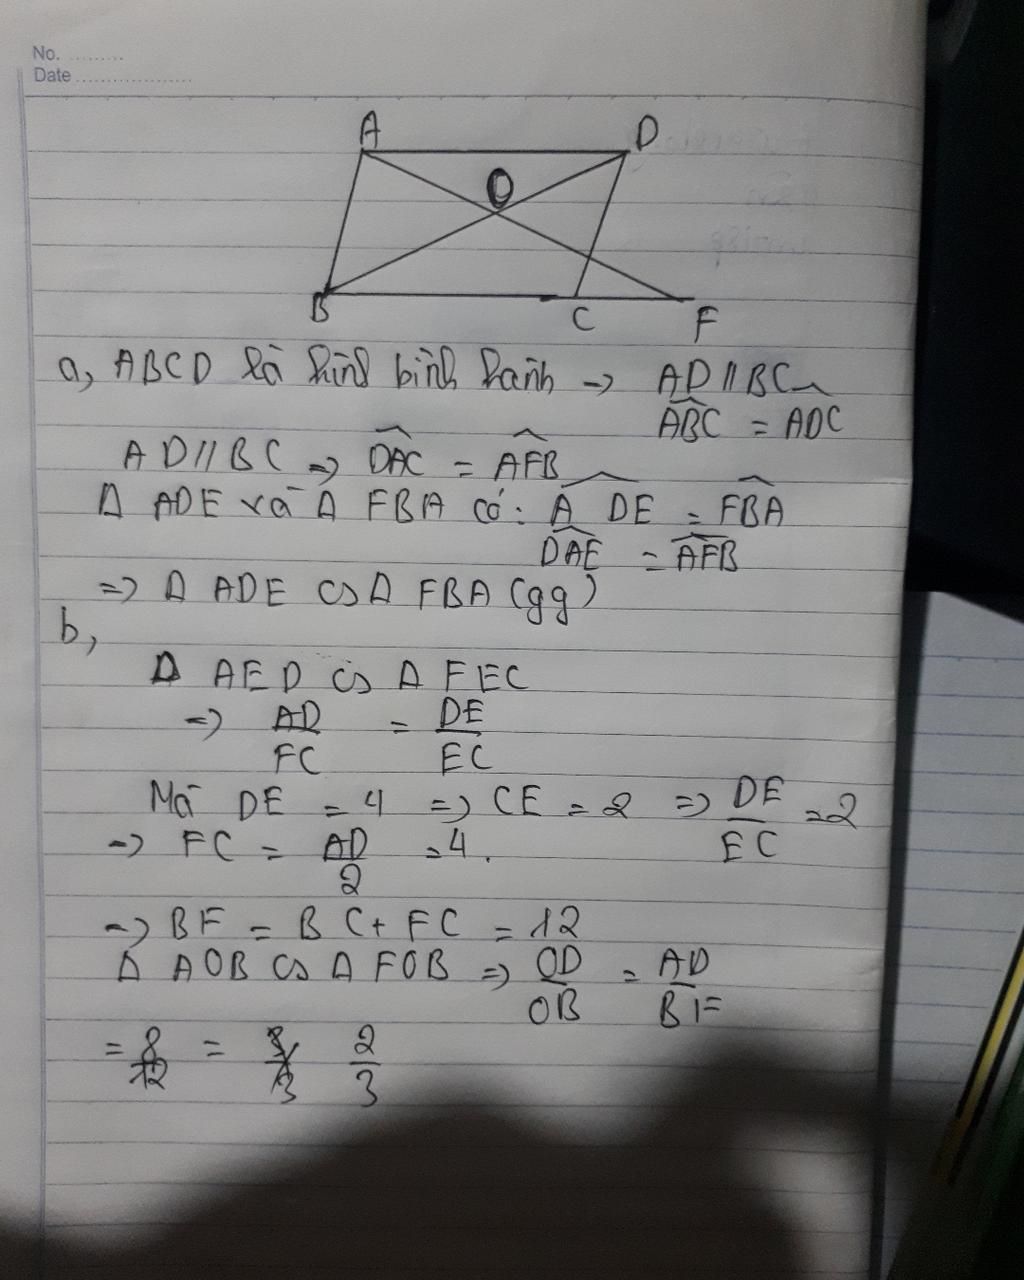 No. .........
Date ....................
A D
O
B C F
a, ABCD là hình bình hành → AD // BC
ABC = ADC
AD // BC => DAC = AFB
Δ ADE và Δ FBA có: A DE = FBA
DAE = AFB
=> Δ ADE ∽ Δ FBA (gg)
b,
Δ AED ∽ Δ FEC
=> AD/FC = DE/EC
Mà DE = 4 => CE = 2 => DE/EC = 2
=> FC = AD/2 = 4.
=> BF = BC + FC = 12
Δ AOB ∽ Δ FOB => OD/OB = AD/BF
= 8/12 = 2/3